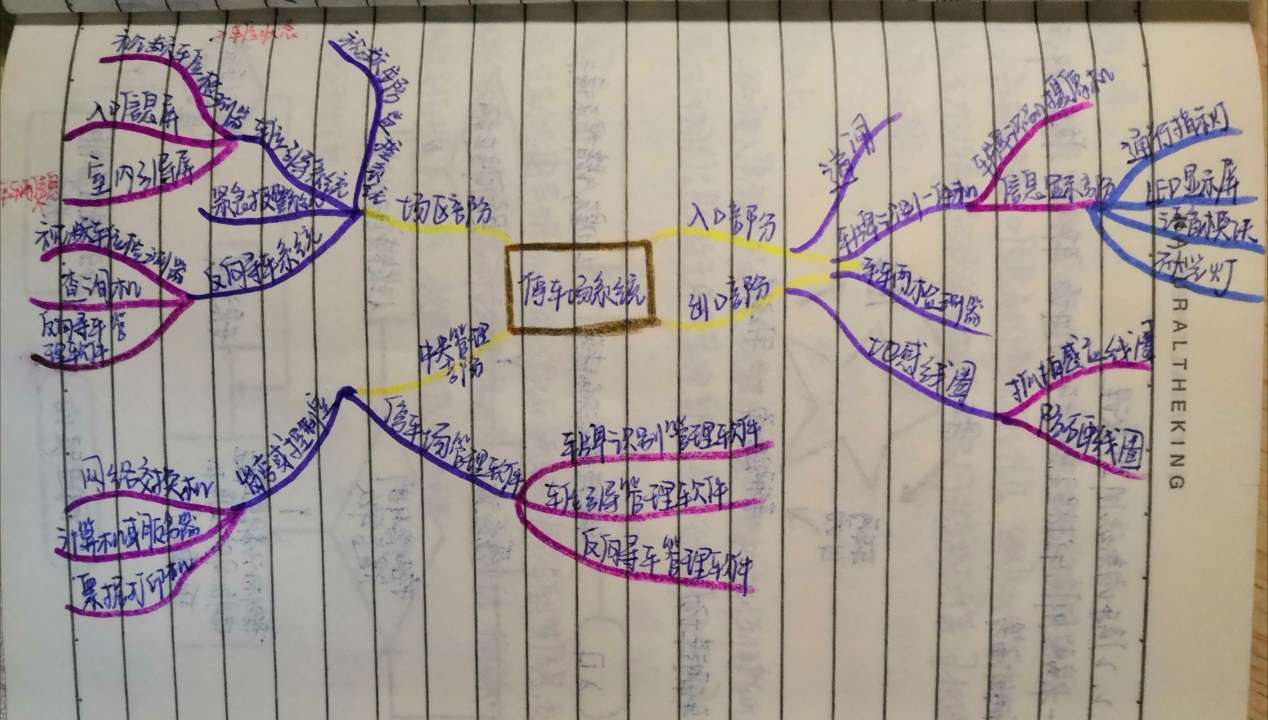 停车场系统
场区部份
视频车号处理系统
车位引导系统
入口信息屏
室内引导屏
紧急报警系统
反向寻车系统
视频车位检测器
查询机
反向寻车管
理软件
中央管理
部份
监亭或控制室
网络交换机
计算机或服务器
票据打印机
停车场管理软件
车牌识别管理软件
车位引导管理软件
反向寻车管理软件
入口部份
出口部份
道闸
车牌识别一体机
车牌识别摄像机
信息显示部份
通行指示灯
LED显示屏
语音模块
补光灯
车辆检测器
地感线圈
抓拍感应线圈
防砸线圈
车位状态
URALTHEKING